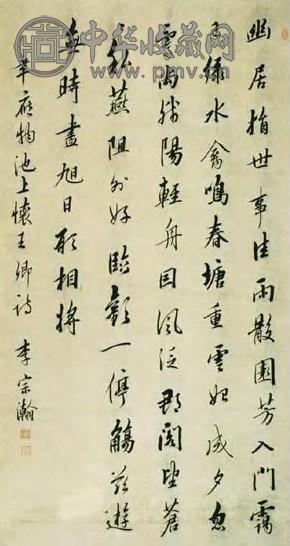 中华收藏网
www.pmv.cn
幽居捐世事佳雨散園芳入門靄
已綠水禽鳴春塘重雲始成夕忽
霽尚殘陽輕舟因風泛郡閣望蒼
私燕阻外好臨歡一停觴茲遊
無時盡旭日願相將
韋應物池上懷王卿詩 李宗瀚